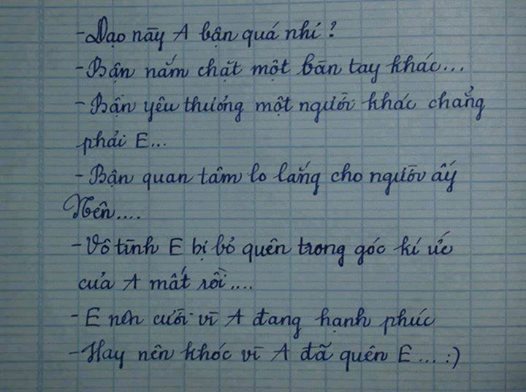 - Dạo này A bận quá nhỉ ?
- Bận nắm chặt một bàn tay khác...
- Bận yêu thương một người khác chẳng
phải E...
- Bận quan tâm lo lắng cho người ấy
Nên....
- Vô tình E bị bỏ quên trong góc kí ức
của A mất rồi....
- E nên cười vì A đang hạnh phúc
- Hay nên khóc vì A đã quên E... :)